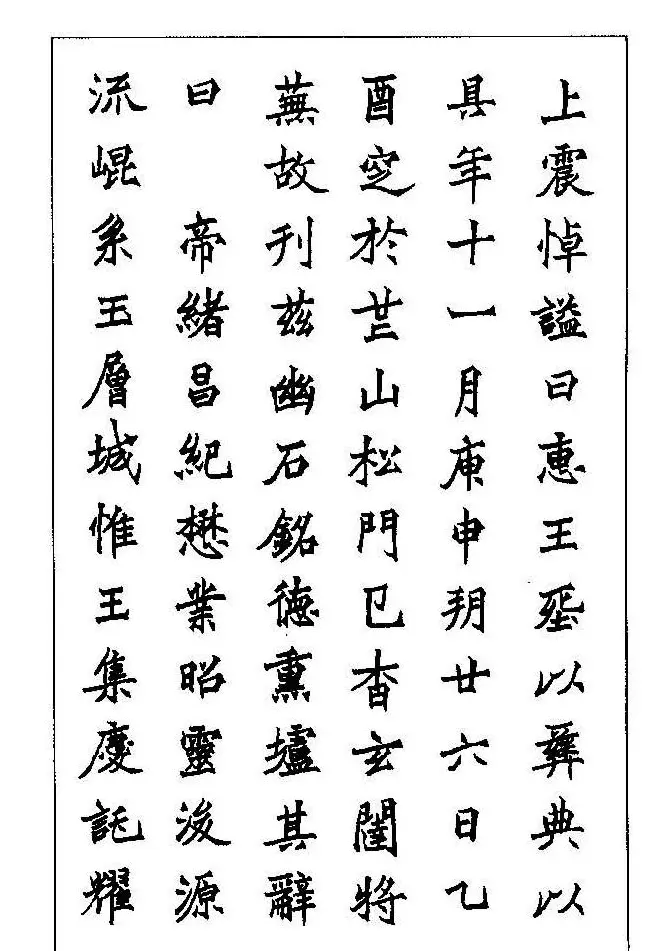 上震悼謚曰惠王塟以彝典以
其年十一月庚申朔廿六日乙
酉窆於芒山松門已杳玄闥將
蕪故刊茲幽石銘德熏壚其辭
曰 帝緒昌紀懋業昭靈浚源
流崐系玉層城惟王集慶託耀